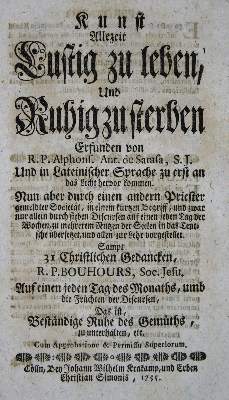 Kunst
Allezeit
Lustig zu leben,
Und
Ruhig zu sterben
Erfunden von
R. P. Alphons. Ant. de Sarasa, S. J.
Und in Lateinischer Sprache zu erst an
das Licht hervor kommen.
Nun aber durch einen andern Priester
gemeldter Societät, in ihrem kurtzen Begriff, und zwar
nur allein durch sieben Discursen auf einen jeden Tag der
Wochen, zu mehrerem Nutzen der Seelen in das Teut-
sche übersetzet, und allen zur Lehr vorgestellet.
Sampt
31 Christlichen Gedancken,
R. P. BOUHOURS, Soc. Jesu,
Auf einen jeden Tag des Monaths, umb
die Früchten der Discursen,
Das ist,
Beständige Ruhe des Gemüths,
zu unterhalten, etc.
Cum Approbatione & Permissu Superiorum.
Cölln, Bey Johann Wilhelm Krakamp, und Erben
Christian Simonis, 1755.